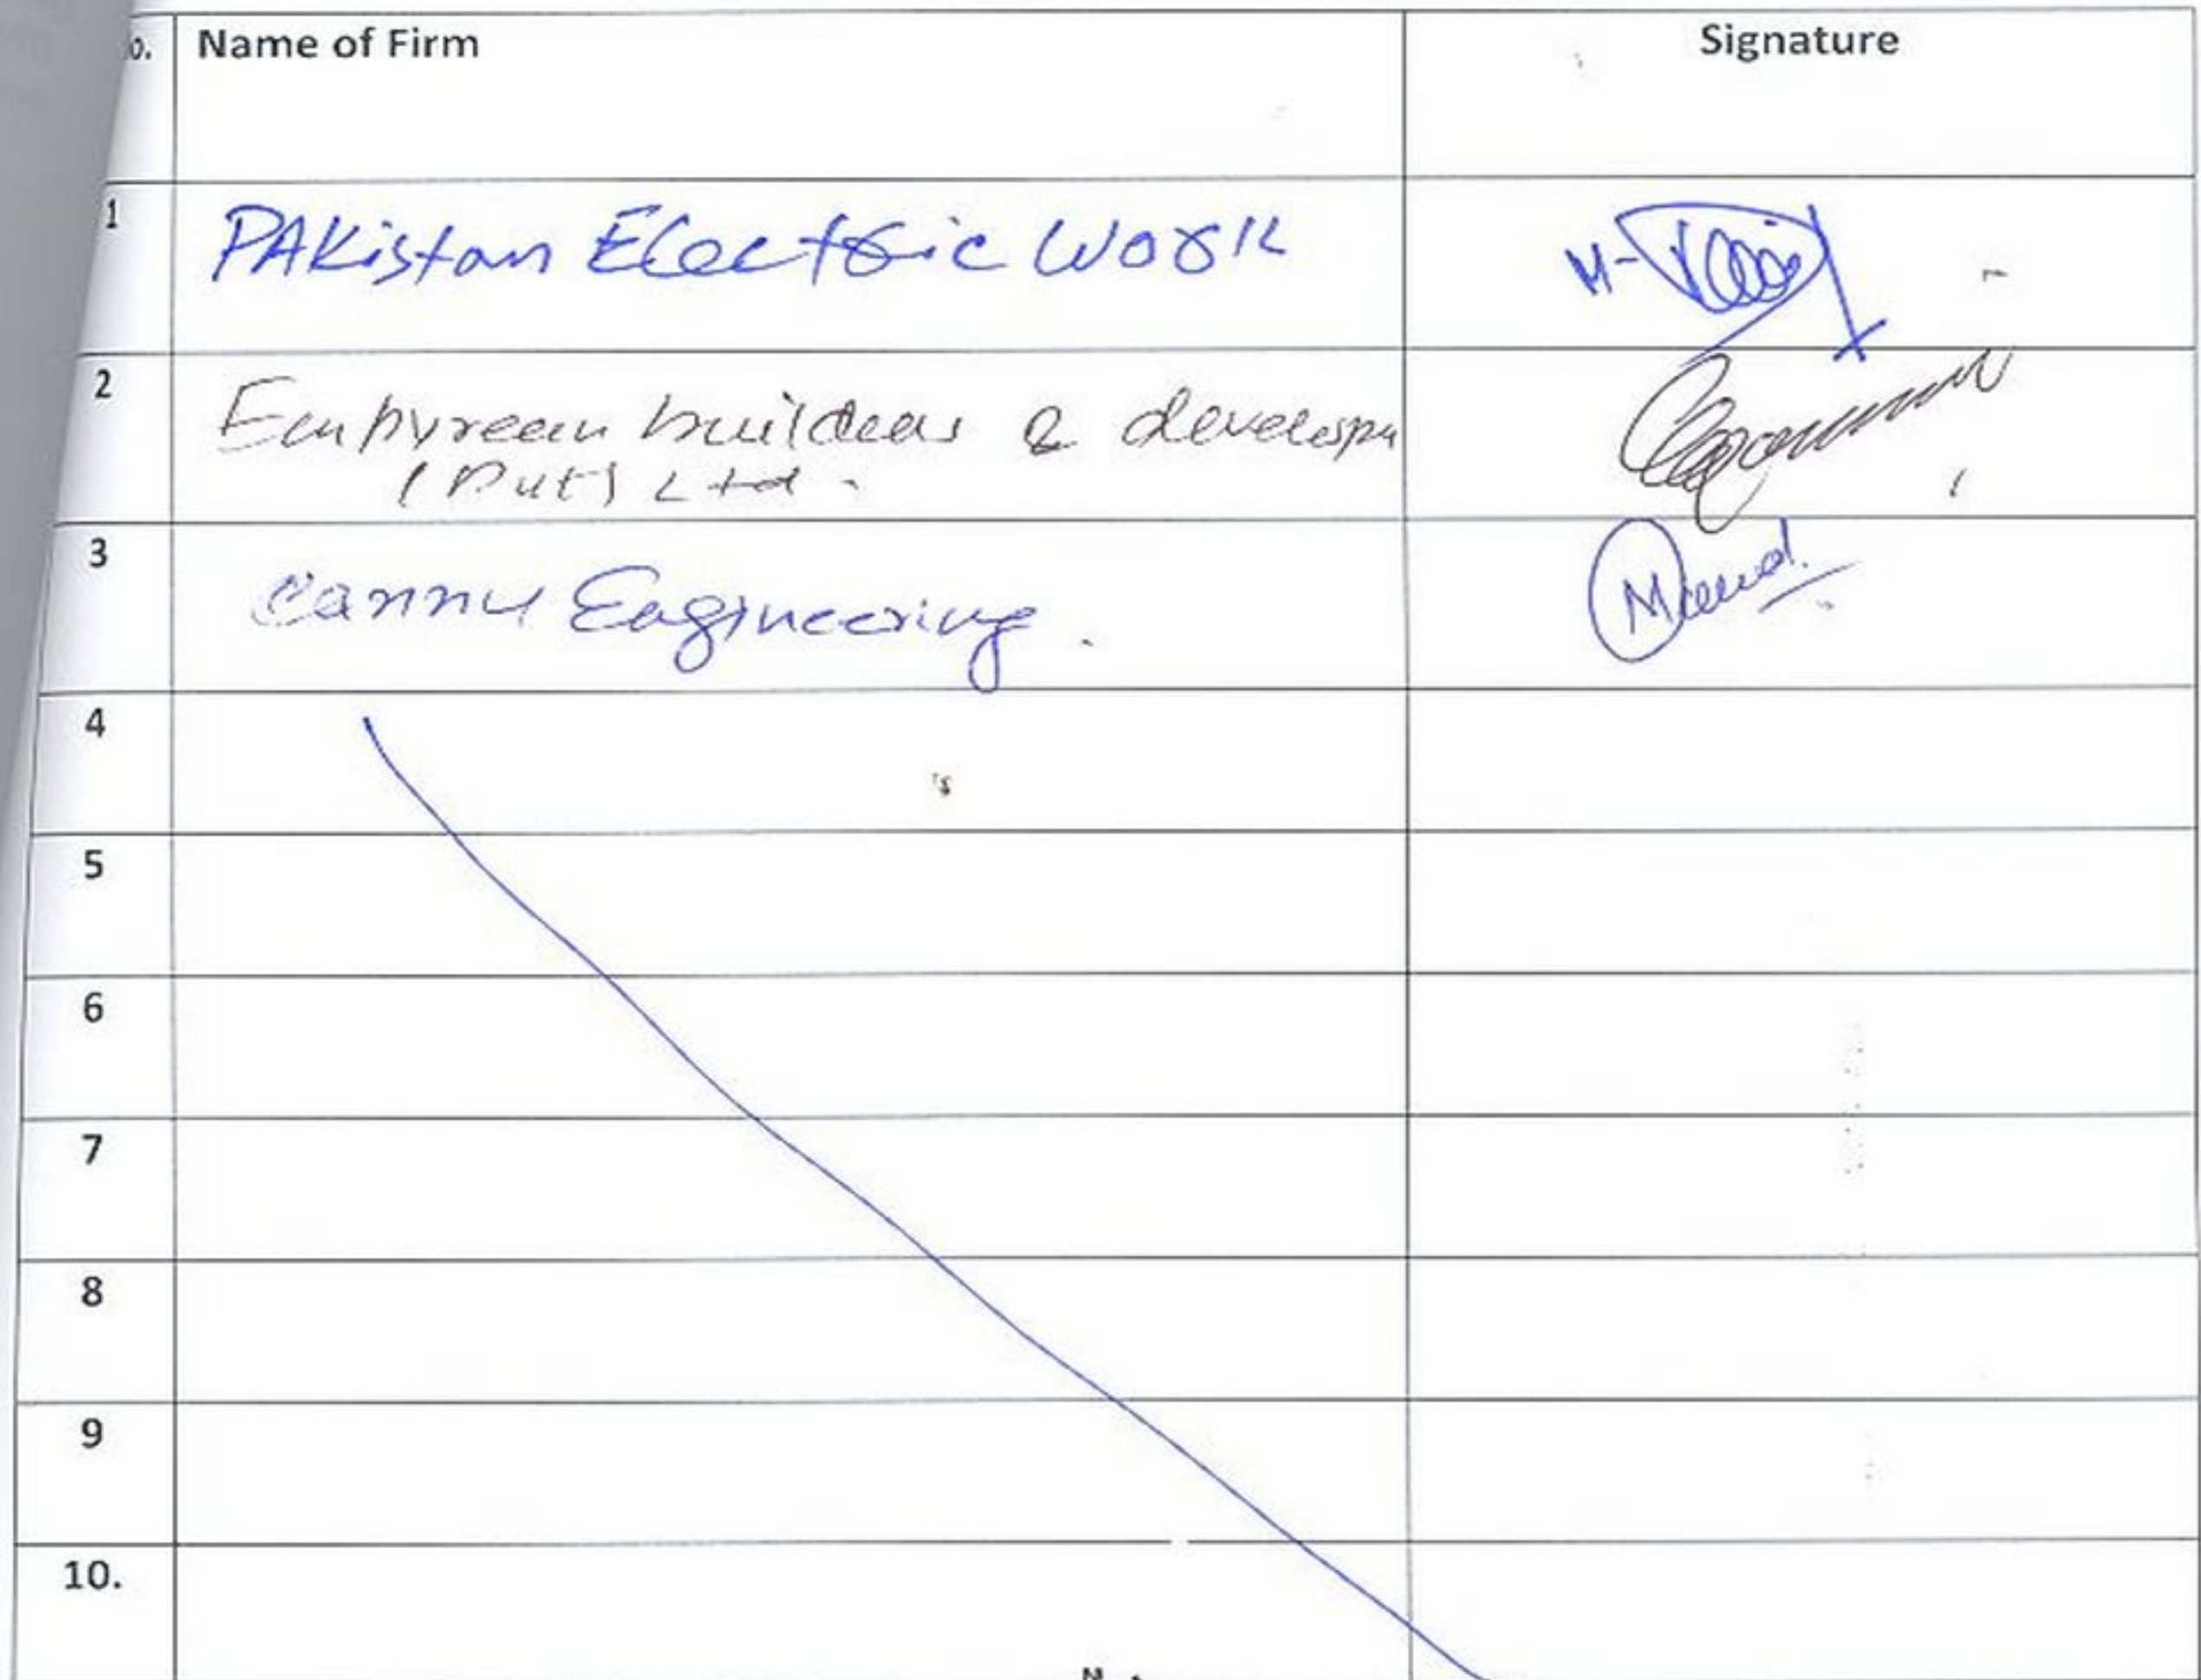 o. Name of Firm Signature
1 PAKistan Electric Work
2 Empyrean builders & develope
(Pvt) Ltd.
3 Engineering.
4
5
6
7
8
9
10.